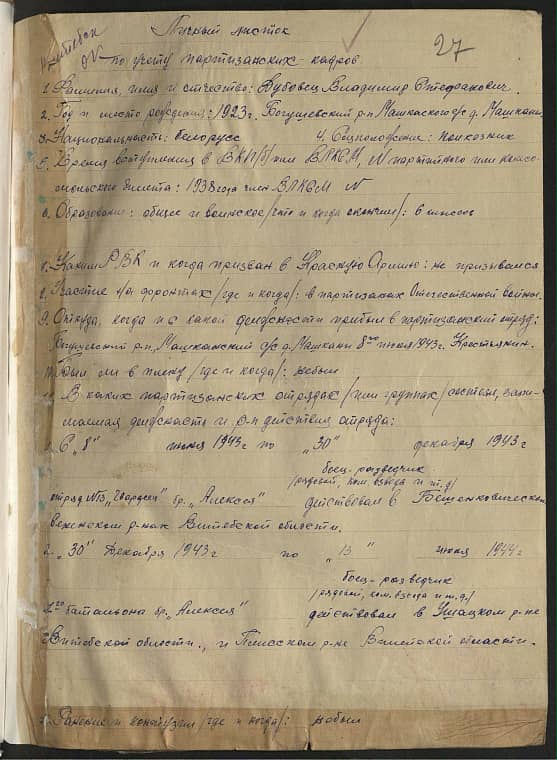 Личный листок
27
по учету партизанских кадров
1. Фамилия, имя и отчество: Дубовец Владимир Стефанович.
2. Год и место рождения: 1923 г. Богушевский р-н Машканского с/с д. Машканы
3. Национальность: белорусс 4. Соцположение: колхозник
5. Время вступления в ВКП(б) или ВЛКСМ, N партийного или комсо-
мольского билета: 1938 года член ВЛКСМ N
6. Образование: общее и воинское /что и когда окончил/: 6 классов
7. Каким РВК и когда призван в Красную Армию: не призывался
8. Участие на фронтах /где и когда/: в партизанах Отечественной войны.
9. Откуда, когда и с какой должности прибыл в партизанский отряд:
Богушевский р-н, Машканский с/с д. Машканы 8го июня 1943 г. Крестьянин.
10. Был ли в плену /где и когда/: небыл
11. В каких партизанских отрядах /или группах/ состоял, зани-
маемая должность и р-н действия отряда:
1. С "8" июня 1943 г по "30" декабря 1943 г
боец-разведчик
/рядовой, ком. взвода и т.д/
отряд N13 "Гвардеец" бр. "Алексея" действовал в Бешенковическом
ском р-нах Витебской области.
2. "30" Декабря 1943 г по "15" июня 1944 г
боец-разведчик
/рядовой, ком. взвода и т.д./
2го батальона бр. "Алексея" действовал в Ушацком р-не
Витебской области., и Плисском р-не Вилейской области.
Ранение и контузии /где и когда/: небыл